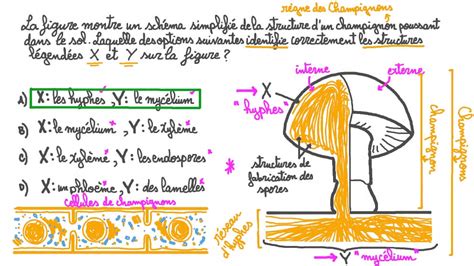 règne des Champignons
La figure montre un schéma simplifié de la structure d'un champignon poussant
dans le sol. Laquelle des options suivantes identifie correctement les structures
légendées X et Y sur la figure ?
A) X: les hyphes, Y: le mycélium
B) X: le mycélium, Y: le xylème
C) X: le xylème, Y: les endospores
D) X: un phloème, Y: des lamelles
cellules de champignons
interne
externe
X
"hyphes"
structures de
fabrication des
spores
champignon
Champignon
réseau
d'hyphes
Y "mycélium"